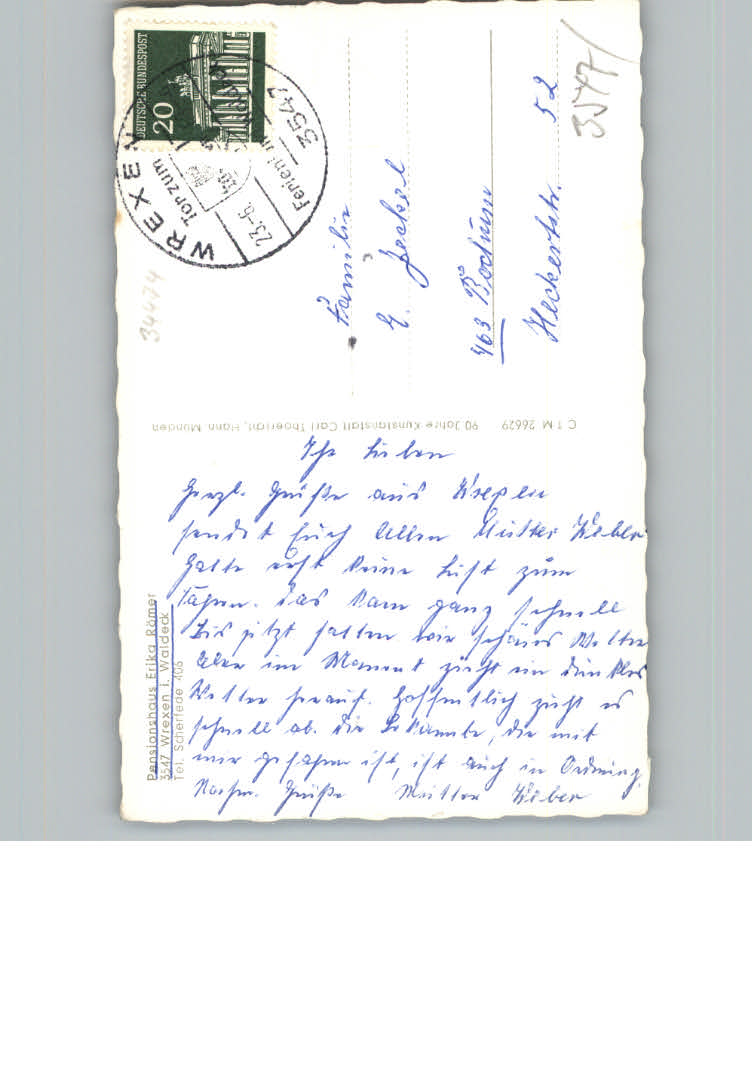 DEUTSCHE BUNDESPOST
20
WREXEN
3547
Tor zum
23.-6.
3547
Familie
E. Jeckel
463 Bochum
Heckertstr. 52
34474
C T M 26629 90 Jahre Kunstanstalt Carl Thoericht, Hann. Münden
Ihr Lieben
Herzl. Grüße aus Wrexen
sendet Euch Allen Mutter Weber
Hatte erst keine Lust zum
Fahren. Das kam ganz schnell
Bis jetzt hatten wir schönes Wetter
Aber im Moment zieht ein dunkles
Wetter herauf. Hoffentlich zieht es
schnell ab. Die Bekannte, die mit
mir gefahren ist, ist auch in Ordnung.
Nochm. Grüße Mutter Weber
Pensionshaus Erika Römer
3547 Wrexen i. Waldeck
Tel. Scherfede 406